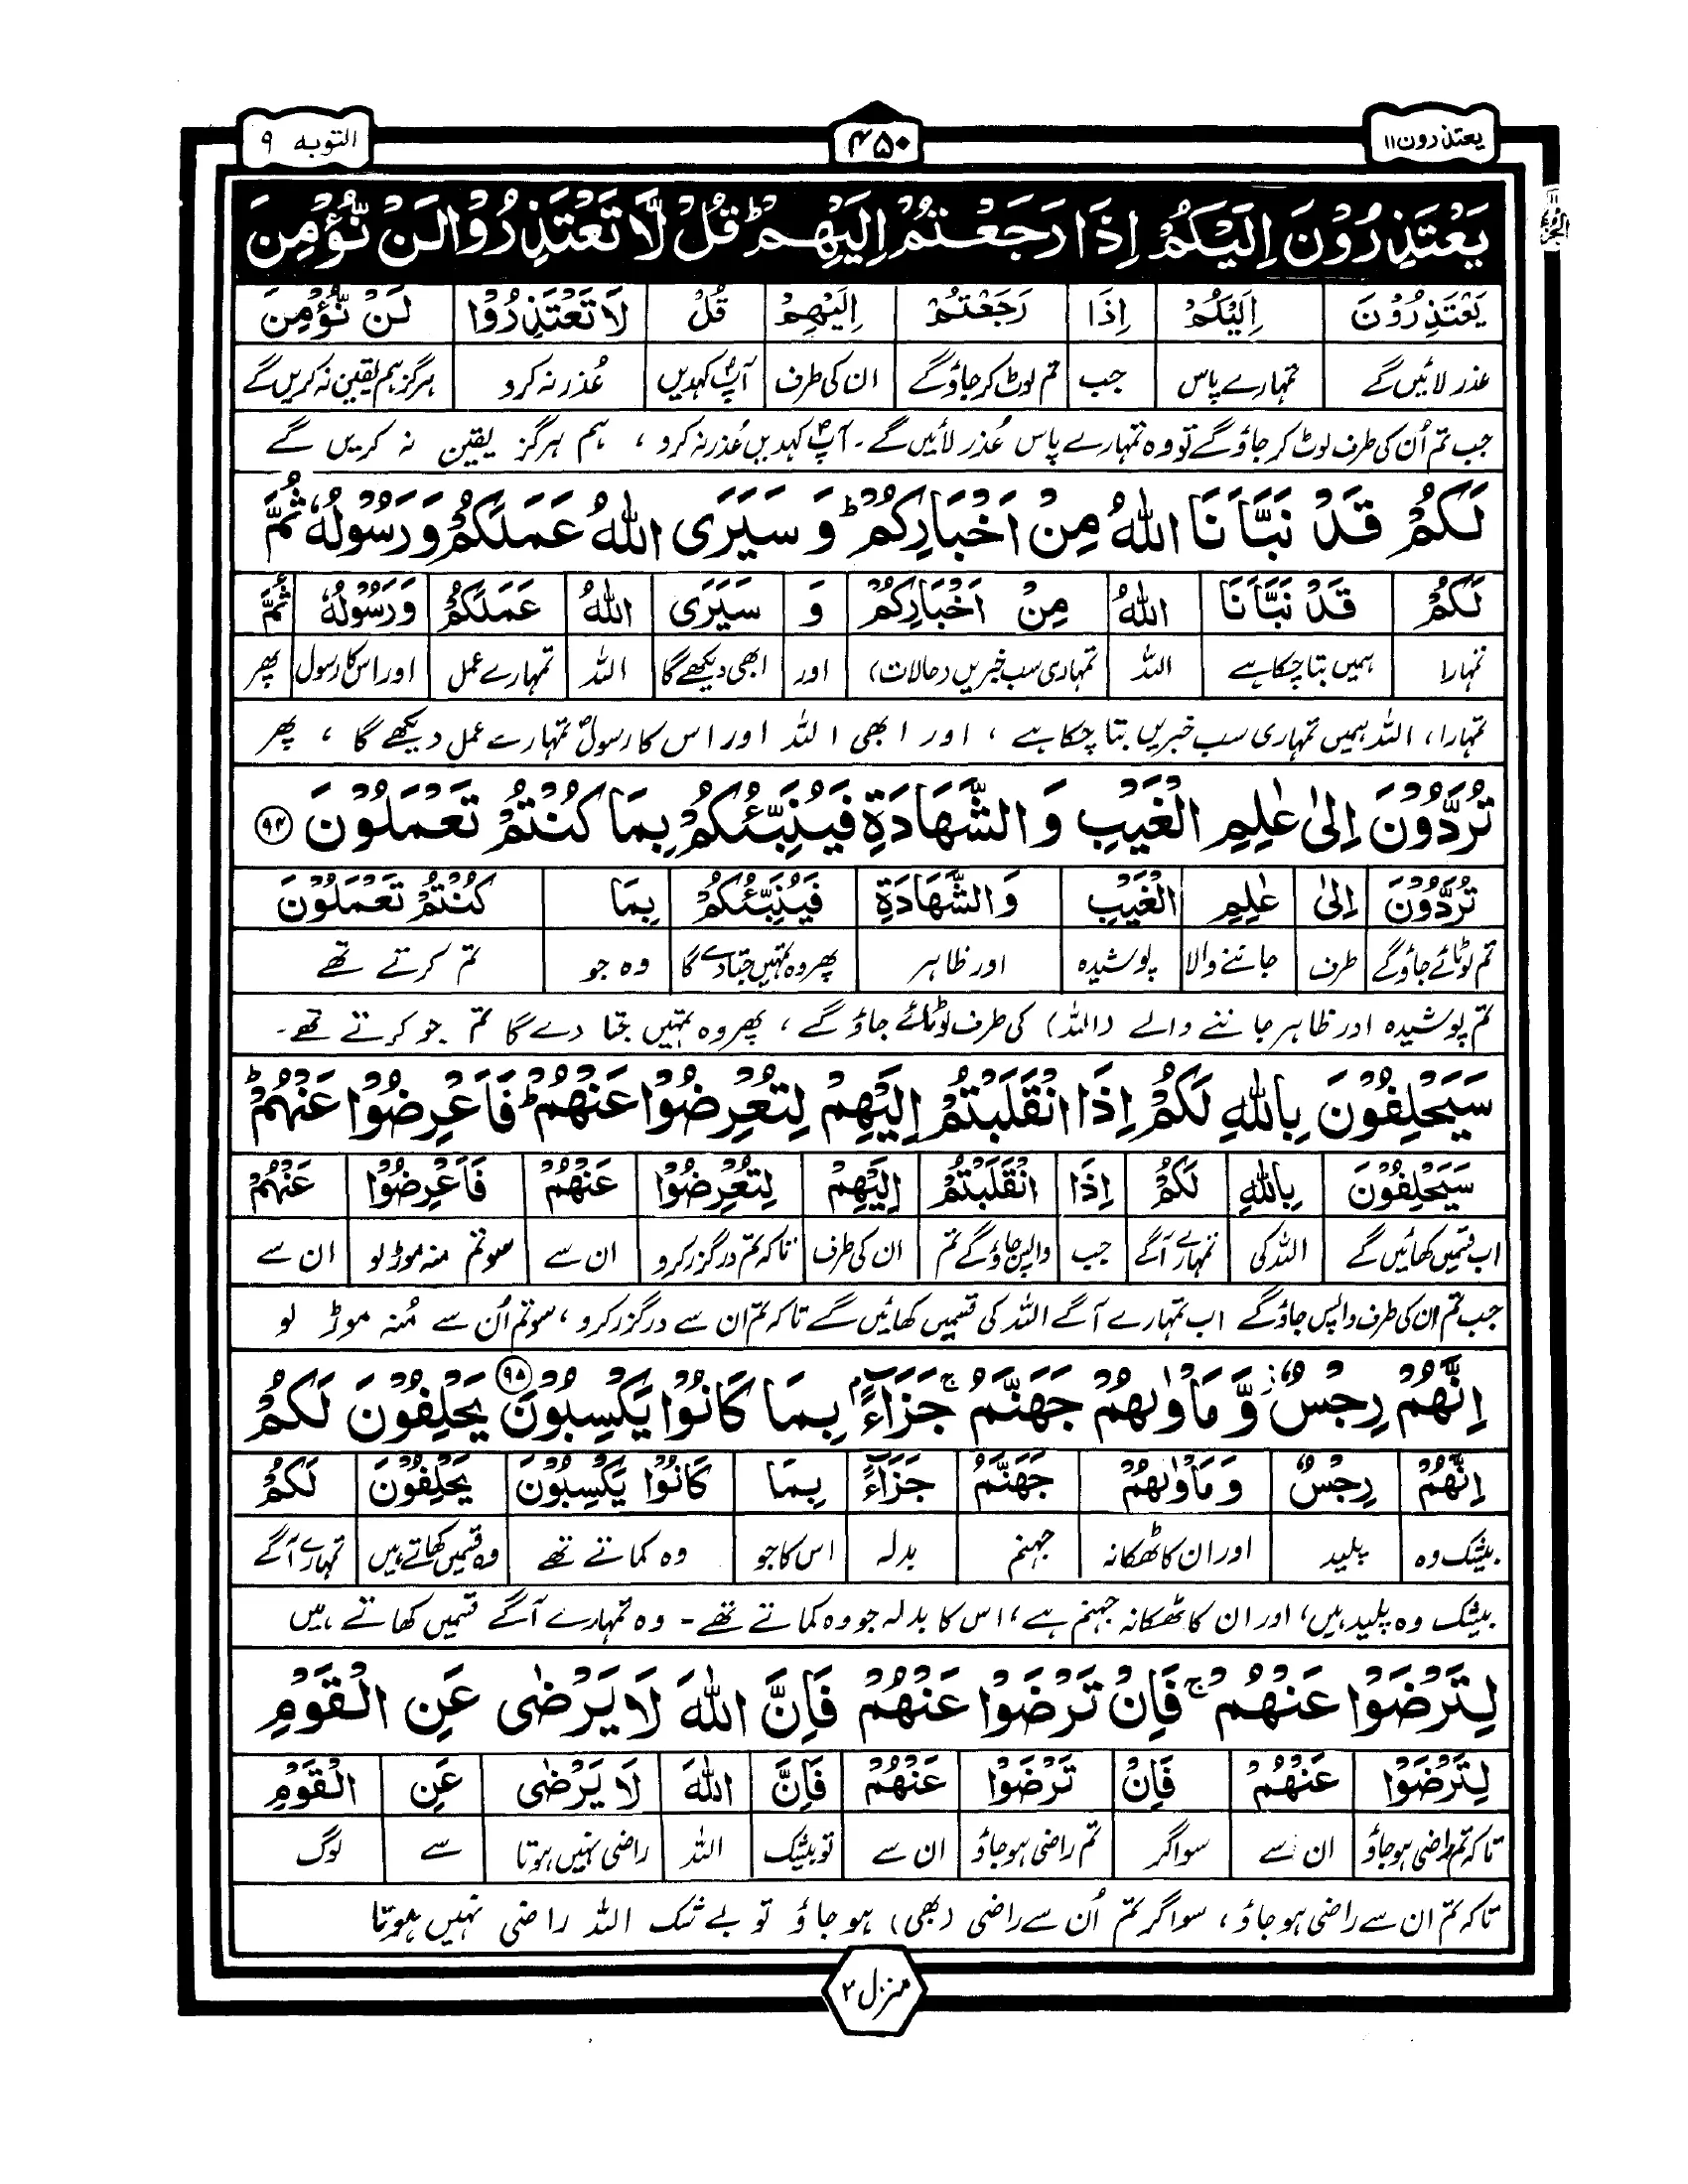 یعتذرون ۱۱
۴۵۰
التوبہ ۹
یَعْتَذِرُوْنَ اِلَیْكُمْ اِذَا رَجَعْتُمْ اِلَیْهِمْ ؕ قُلْ لَّا تَعْتَذِرُوْا لَنْ نُّؤْمِنَ
یَعْتَذِرُوْنَ اِلَیْكُمْ اِذَا رَجَعْتُمْ اِلَیْهِمْ قُلْ لَا تَعْتَذِرُوْا لَنْ نُّؤْمِنَ
عذر لائیں گے تمہارے پاس جب تم لوٹ کر جاؤ گے ان کی طرف آپؐ کہدیں عُذر نہ کرو ہرگز ہم یقین نہ کریں گے
جب تم اُن کی طرف لوٹ کر جاؤ گے تو وہ تمہارے پاس عُذر لائیں گے۔ آپؐ کہدیں عُذر نہ کرو ، ہم ہرگز یقین نہ کریں گے
لَكُمْ قَدْ نَبَّاَنَا اللّٰهُ مِنْ اَخْبَارِكُمْ ؕ وَ سَیَرَی اللّٰهُ عَمَلَكُمْ وَ رَسُوْلُهٗ ثُمَّ
لَكُمْ قَدْ نَبَّاَنَا اللّٰهُ مِنْ اَخْبَارِكُمْ وَ سَیَرَی اللّٰهُ عَمَلَكُمْ وَرَسُوْلُهٗ ثُمَّ
تمہارا ہمیں بتا چکا ہے اللہ تمہاری سب خبریں (حالات) اور ابھی دیکھے گا اللہ تمہارے عمل اور اس کا رسول پھر
تمہارا، اللہ ہمیں تمہاری سب خبریں بتا چکا ہے ، اور ابھی اللہ اور اس کا رسولؐ تمہارے عمل دیکھے گا ، پھر
تُرَدُّوْنَ اِلٰی عٰلِمِ الْغَیْبِ وَ الشَّهَادَةِ فَیُنَبِّئُكُمْ بِمَا كُنْتُمْ تَعْمَلُوْنَ ۹۴
تُرَدُّوْنَ اِلٰی عٰلِمِ الْغَیْبِ وَالشَّهَادَةِ فَیُنَبِّئُكُمْ بِمَا كُنْتُمْ تَعْمَلُوْنَ
تم لوٹائے جاؤ گے طرف جاننے والا پوشیدہ اور ظاہر پھر وہ تمہیں جتا دے گا وہ جو تم کرتے تھے
تم پوشیدہ اور ظاہر جاننے والے (اللہ) کی طرف لوٹائے جاؤ گے ، پھر وہ تمہیں جتا دے گا تم جو کرتے تھے۔
سَیَحْلِفُوْنَ بِاللّٰهِ لَكُمْ اِذَا انْقَلَبْتُمْ اِلَیْهِمْ لِتُعْرِضُوْا عَنْهُمْ ؕ فَاَعْرِضُوْا عَنْهُمْ ؕ
سَیَحْلِفُوْنَ بِاللّٰهِ لَكُمْ اِذَا انْقَلَبْتُمْ اِلَیْهِمْ لِتُعْرِضُوْا عَنْهُمْ فَاَعْرِضُوْا عَنْهُمْ
اب قسمیں کھائیں گے اللہ کی تمہارے آگے جب واپس جاؤ گے تم ان کی طرف تاکہ تم درگزر کرو ان سے سو تم منہ موڑ لو ان سے
جب تم ان کی طرف واپس جاؤ گے اب تمہارے آگے اللہ کی قسمیں کھائیں گے تاکہ تم ان سے درگزر کرو ، سو تم اُن سے مُنہ موڑ لو
اِنَّهُمْ رِجْسٌ ؗ وَّ مَاْوٰىهُمْ جَهَنَّمُ ۚ جَزَآءًۢ بِمَا كَانُوْا یَكْسِبُوْنَ ۹۵ یَحْلِفُوْنَ لَكُمْ
اِنَّهُمْ رِجْسٌ وَ مَاْوٰىهُمْ جَهَنَّمُ جَزَآءً بِمَا كَانُوْا یَكْسِبُوْنَ یَحْلِفُوْنَ لَكُمْ
بیشک وہ پلید اور ان کا ٹھکانہ جہنم بدلہ اس کا جو وہ کماتے تھے وہ قسمیں کھاتے ہیں تمہارے آگے
بیشک وہ پلید ہیں، اور ان کا ٹھکانہ جہنم ہے ، اس کا بدلہ جو وہ کماتے تھے۔ وہ تمہارے آگے قسمیں کھاتے ہیں
لِتَرْضَوْا عَنْهُمْ ۚ فَاِنْ تَرْضَوْا عَنْهُمْ فَاِنَّ اللّٰهَ لَا یَرْضٰی عَنِ الْقَوْمِ
لِتَرْضَوْا عَنْهُمْ فَاِنْ تَرْضَوْا عَنْهُمْ فَاِنَّ اللّٰهَ لَا یَرْضٰی عَنِ الْقَوْمِ
تاکہ تم راضی ہو جاؤ ان سے سو اگر تم راضی ہو جاؤ ان سے تو بیشک اللہ راضی نہیں ہوتا سے لوگ
تاکہ تم ان سے راضی ہو جاؤ ، سو اگر تم اُن سے راضی (بھی) ہو جاؤ تو بے شک اللہ راضی نہیں ہوتا
منزل ۲